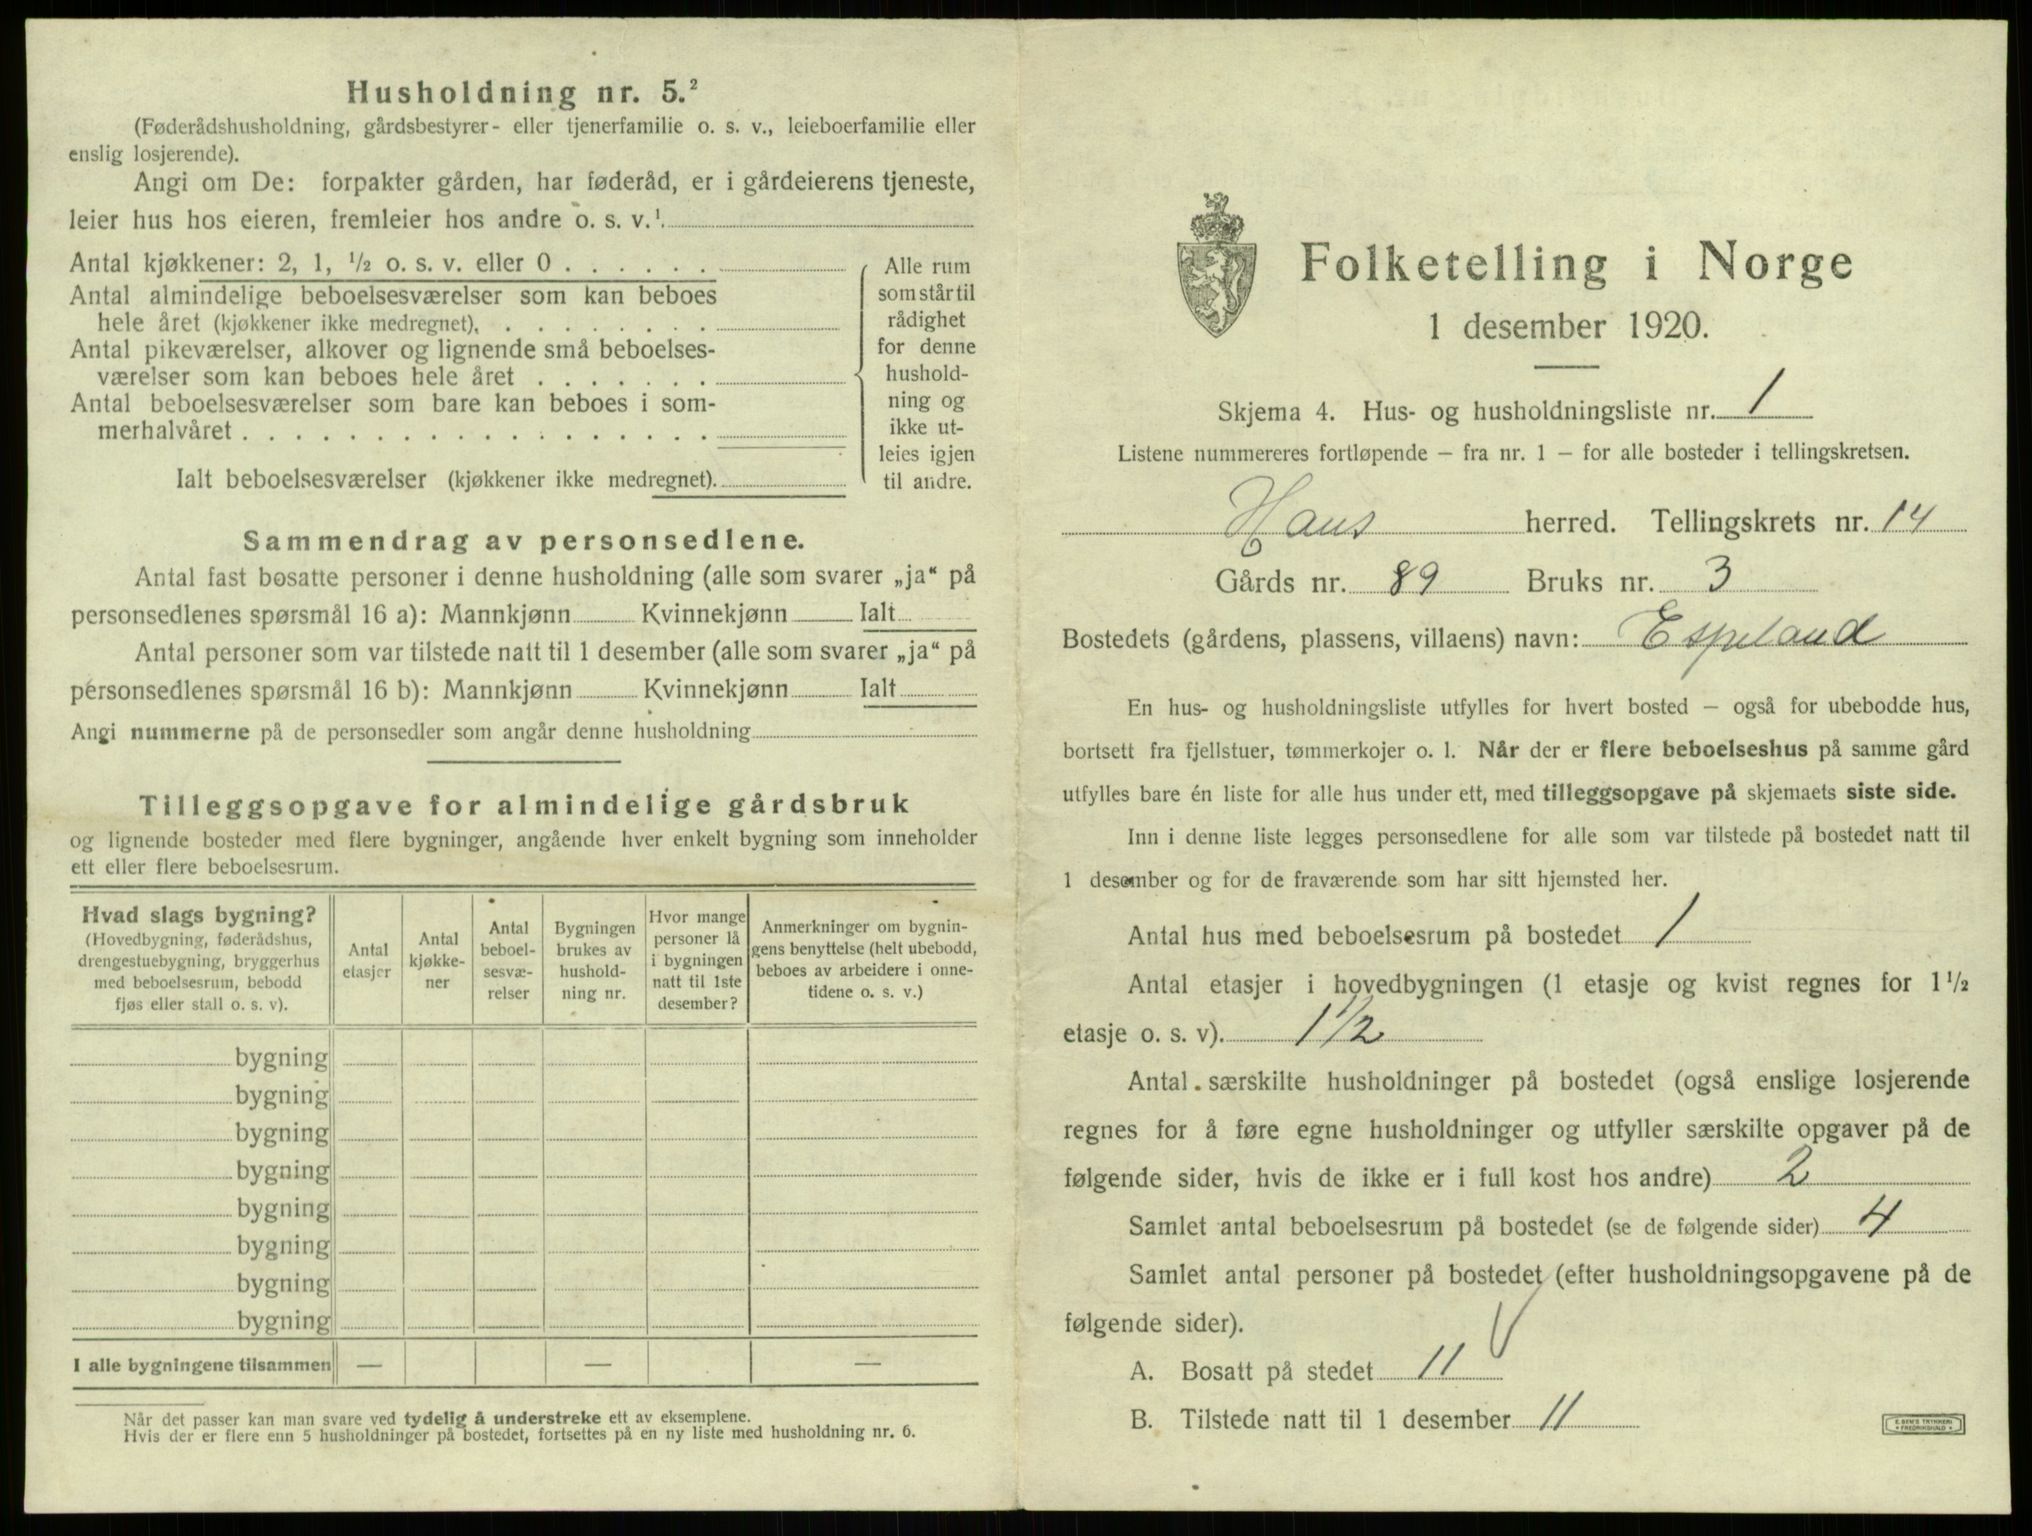 Husholdning nr. 5.²
(Føderådshusholdning, gårdsbestyrer- eller tjenerfamilie o. s. v., leieboerfamilie eller
enslig losjerende).
Angi om De: forpakter gården, har føderåd, er i gårdeierens tjeneste,
leier hus hos eieren, fremleier hos andre o. s. v.¹
Antal kjøkkener: 2, 1, ½ o. s. v. eller 0 . . . . . .
Antal almindelige beboelsesværelser som kan beboes
hele året (kjøkkener ikke medregnet). . . . . . . . .
Antal pikeværelser, alkover og lignende små beboelses-
værelser som kan beboes hele året . . . . . . .
Antal beboelsesværelser som bare kan beboes i som-
merhalvåret . . . . . . . . . . . . . . . . . .
Ialt beboelsesværelser (kjøkkener ikke medregnet).
Alle rum
som står til
rådighet
for denne
hushold-
ning og
ikke ut-
leies igjen
til andre.
Sammendrag av personsedlene.
Antal fast bosatte personer i denne husholdning (alle som svarer „ja“ på
personsedlenes spørsmål 16 a): Mannkjønn Kvinnekjønn Ialt
Antal personer som var tilstede natt til 1 desember (alle som svarer „ja“ på
personsedlenes spørsmål 16 b): Mannkjønn Kvinnekjønn Ialt
Angi nummerne på de personsedler som angår denne husholdning
Tilleggsopgave for almindelige gårdsbruk
og lignende bosteder med flere bygninger, angående hver enkelt bygning som inneholder
ett eller flere beboelsesrum.
Hvad slags bygning?
(Hovedbygning, føderådshus,
drengestuebygning, bryggerhus
med beboelsesrum, bebodd
fjøs eller stall o. s. v).
Antal
etasjer
Antal
kjøkke-
ner
Antal
beboel-
sesvæ-
relser
Bygningen
brukes av
hushold-
ning nr.
Hvor mange
personer lå
i bygningen
natt til 1ste
desember?
Anmerkninger om bygnin-
gens benyttelse (helt ubebodd,
beboes av arbeidere i onne-
tidene o. s. v.)
bygning
bygning
bygning
bygning
bygning
bygning
bygning
bygning
I alle bygningene tilsammen — — —
Når det passer kan man svare ved tydelig å understreke ett av eksemplene.
Hvis der er flere enn 5 husholdninger på bostedet, fortsettes på en ny liste med husholdning nr. 6.
Folketelling i Norge
1 desember 1920.
Skjema 4. Hus- og husholdningsliste nr. 1
Listene nummereres fortløpende – fra nr. 1 – for alle bosteder i tellingskretsen.
Haus herred. Tellingskrets nr. 14
Gårds nr. 89 Bruks nr. 3
Bostedets (gårdens, plassens, villaens) navn: Espeland
En hus- og husholdningsliste utfylles for hvert bosted – også for ubebodde hus,
bortsett fra fjellstuer, tømmerkojer o. l. Når der er flere beboelseshus på samme gård
utfylles bare én liste for alle hus under ett, med tilleggsopgave på skjemaets siste side.
Inn i denne liste legges personsedlene for alle som var tilstede på bostedet natt til
1 desember og for de fraværende som har sitt hjemsted her.
Antal hus med beboelsesrum på bostedet 1
Antal etasjer i hovedbygningen (1 etasje og kvist regnes for 1½
etasje o. s. v). 1½
Antal særskilte husholdninger på bostedet (også enslige losjerende
regnes for å føre egne husholdninger og utfyller særskilte opgaver på de
følgende sider, hvis de ikke er i full kost hos andre) 2
Samlet antal beboelsesrum på bostedet (se de følgende sider) 4
Samlet antal personer på bostedet (efter husholdningsopgavene på de
følgende sider).
A. Bosatt på stedet 11
B. Tilstede natt til 1 desember 11
E. SEM'S TRYKKERI
FREDRIKSHALD